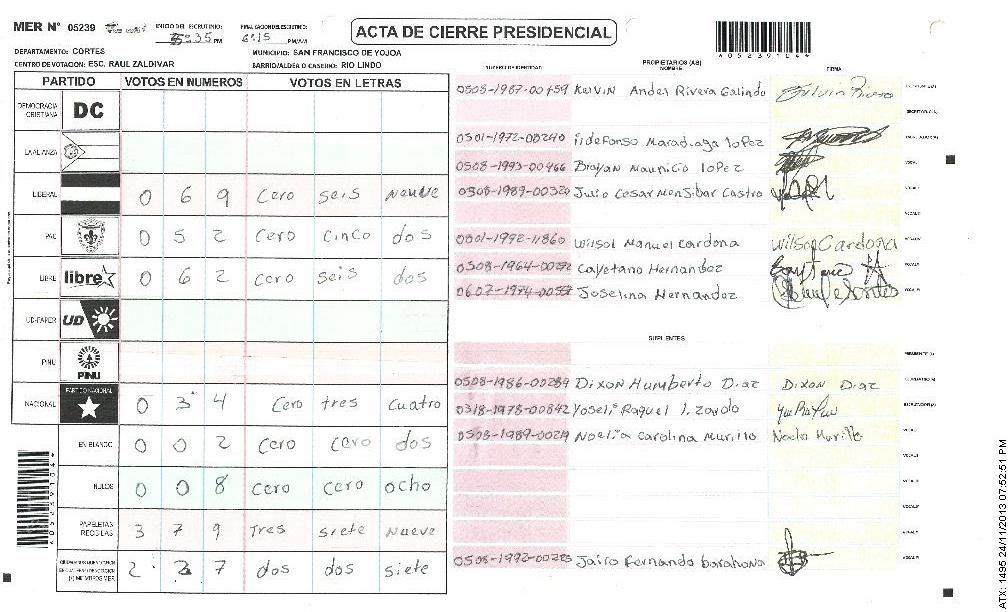 MER N° 05239
INICIO DEL ESCRUTINIO: 5:35 PM
FINALIZACION DEL ESCRUTINIO: 6:15 PM/AM
ACTA DE CIERRE PRESIDENCIAL
DEPARTAMENTO: CORTES
MUNICIPIO: SAN FRANCISCO DE YOJOA
CENTRO DE VOTACION: ESC. RAUL ZALDIVAR
BARRIO/ALDEA O CASERIO: RIO LINDO
PARTIDO VOTOS EN NUMEROS VOTOS EN LETRAS
DEMOCRACIA CRISTIANA DC
LA ALIANZA
LIBERAL 0 6 9 Cero seis nueve
PAC 0 5 2 Cero Cinco dos
LIBRE libre 0 6 2 cero seis dos
UD-FAPER UD
PINU PINU
NACIONAL PARTIDO NACIONAL 0 3 4 Cero tres Cuatro
EN BLANCO 0 0 2 Cero Cero dos
NULOS 0 0 8 Cero Cero ocho
PAPELETAS RECIBIDAS 3 7 9 Tres siete nueve
2 2 7 dos dos siete
NUMERO DE IDENTIDAD PROPIETARIOS (AS) NOMBRE FIRMA
Kelvin Andel Rivera Galindo
0501-1972-08240 ildefonso Maradiaga lopez
0508-1993-00466 Brayan Mauricio lopez
0508-1989-00320 Julio Cesar Menjibar Castro
0801-1992-11860 Wilson Manuel Cardona Wilson Cardona
Cayetano Hernandez
Joselina Hernandez
SUPLENTES
0508-1986-00284 Dixon Humberto Diaz Dixon Diaz
0318-1978-00842 Yoseli Raquel
Noelia Carolina Murillo Noelia Murillo
Jairo Fernando barahona
ATX: 1495 24/11/2013 07:52:51 PM